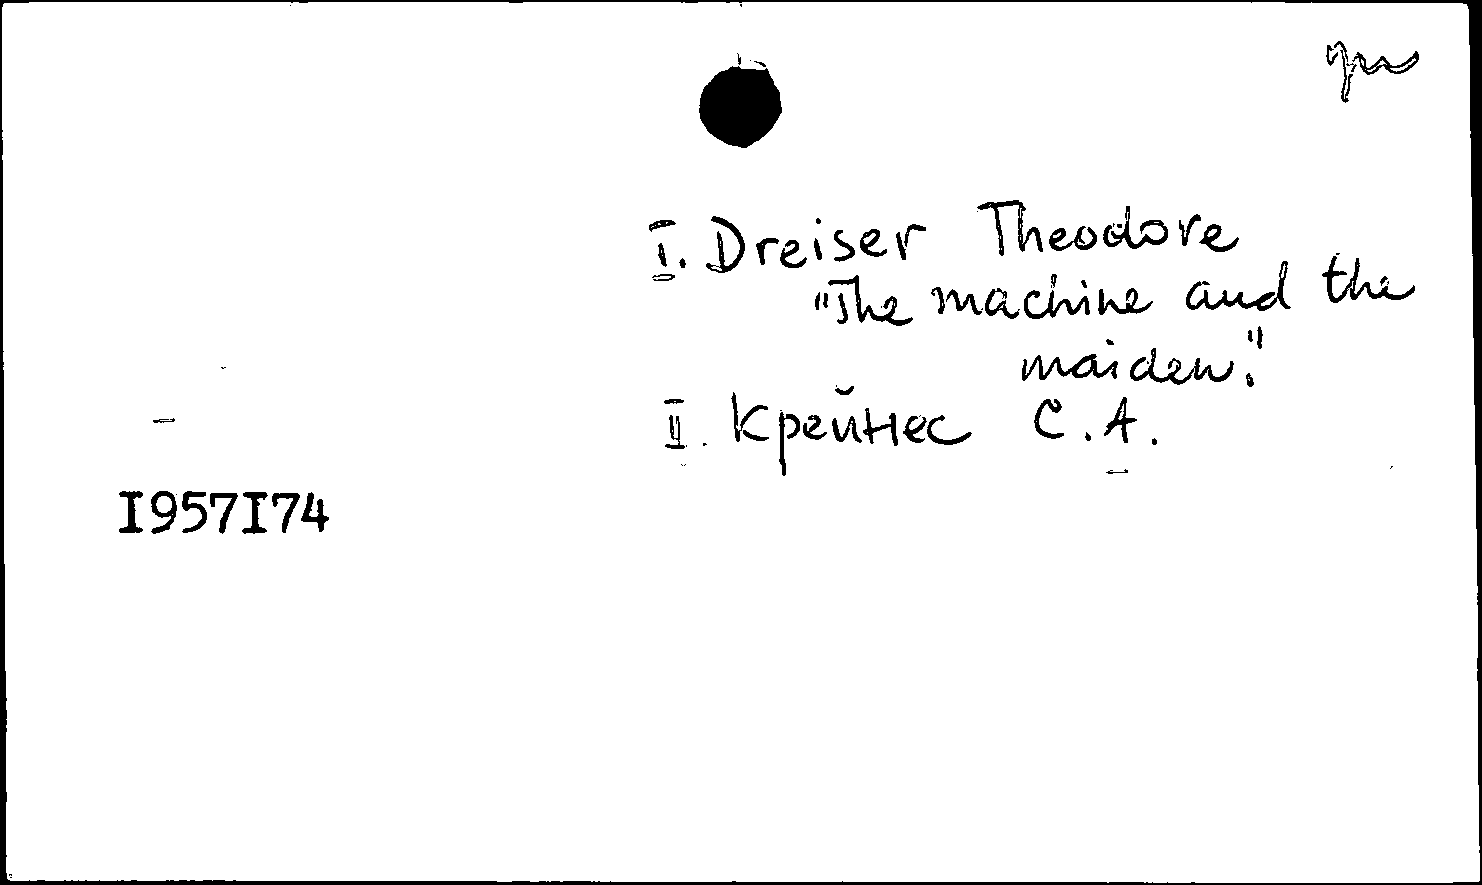 I. Dreiser Theodore
"The machine and the
maiden."
II. Крейнес С.А.
I957I74